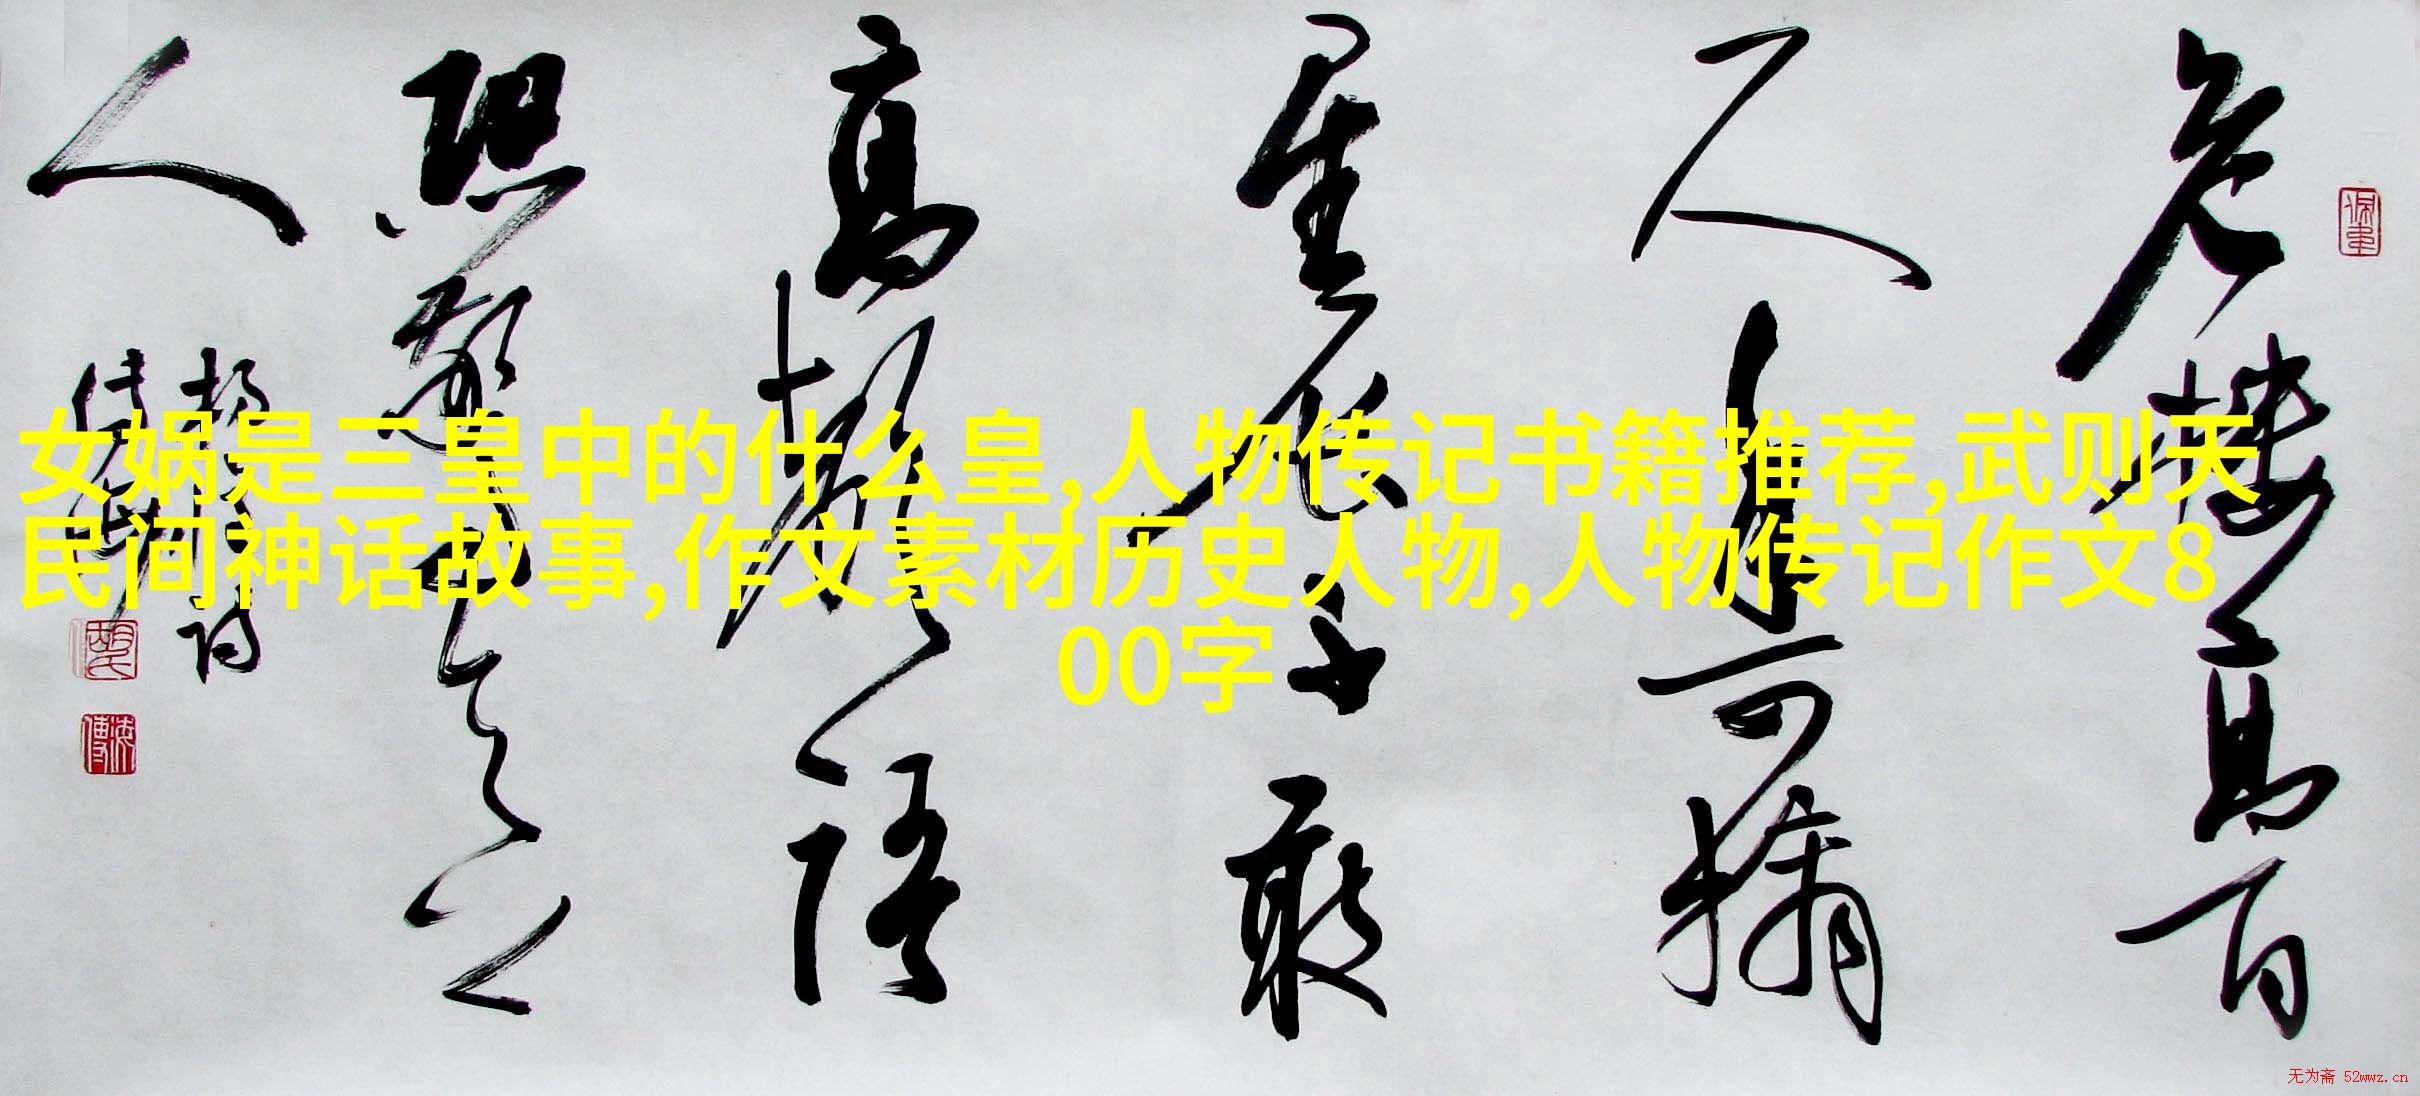 女娲是三皇中的什么皇,人物传记书籍推荐,武则天
民间神话故事,作文素材历史人物,人物传记作文8
00字
危楼高百
尺手可摘
星辰不敢
高声语
恐惊天上
人
无为斋 52wwz.cn